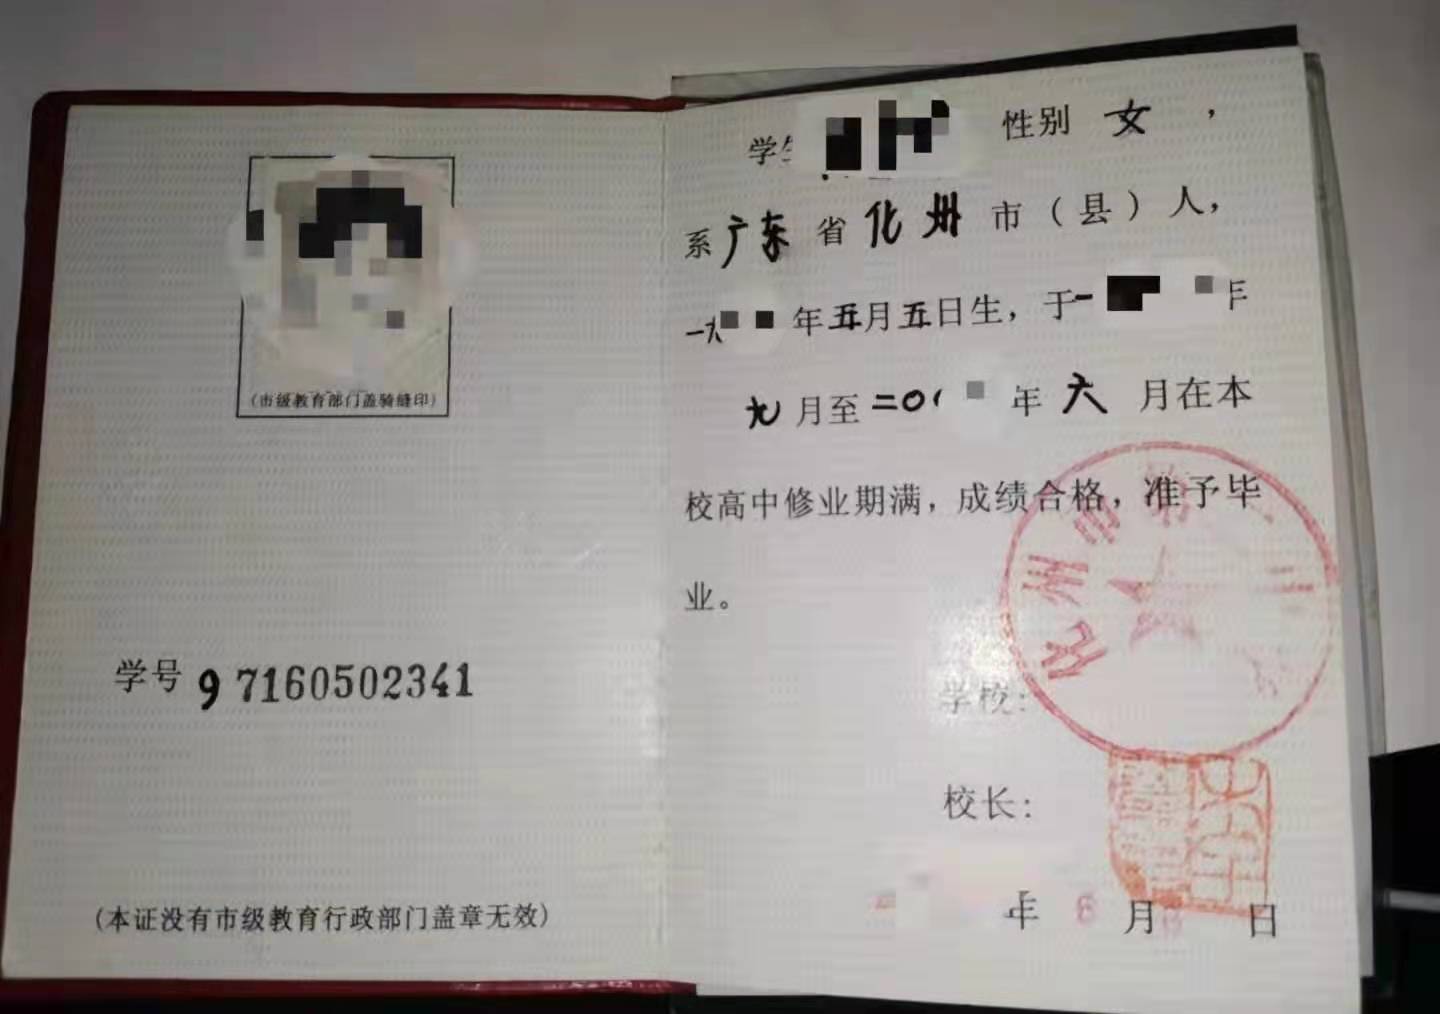 (市级教育部门盖骑缝印)
学号 97160502341
(本证没有市级教育行政部门盖章无效)
学 性别 女 ，
系广东省化州市（县）人，
一九 年五月五日生，于一 年
九月至二〇 年六月在本
校高中修业期满，成绩合格，准予毕
业。
化州市
学校：
校长：
年 6 月 日